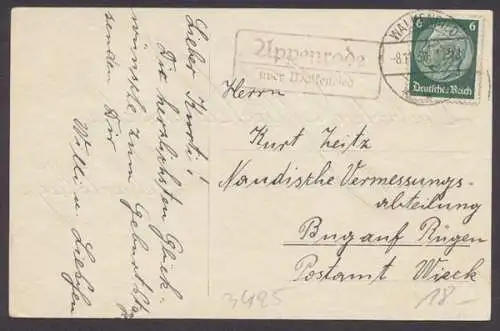 Lieber Kurti!
Die herzlichsten Glück-
wünsche zum Geburtstag
senden Dir
Willi u.
Appenrode
über Walkenried
WALKENRIED
6 6
Deutsches Reich
Herrn
Kurt Zeitz
Vermessungs-
abteilung
Bug auf Rügen
Postamt Wieck
3425
18.-